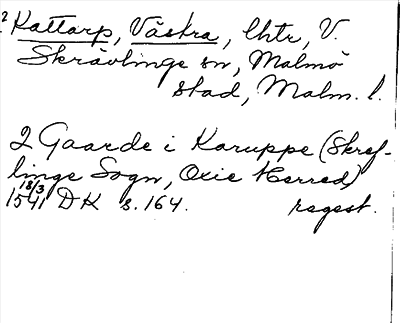 2 Kattarp, Västra, Chtr, V.
Skrävlinge sn, Malmö
stad, Malm. l.
2 Gaarde i Karuppe (Skref-
linge Sogn, Oxie Herred)
18/3
1541 DK s. 164. regest.